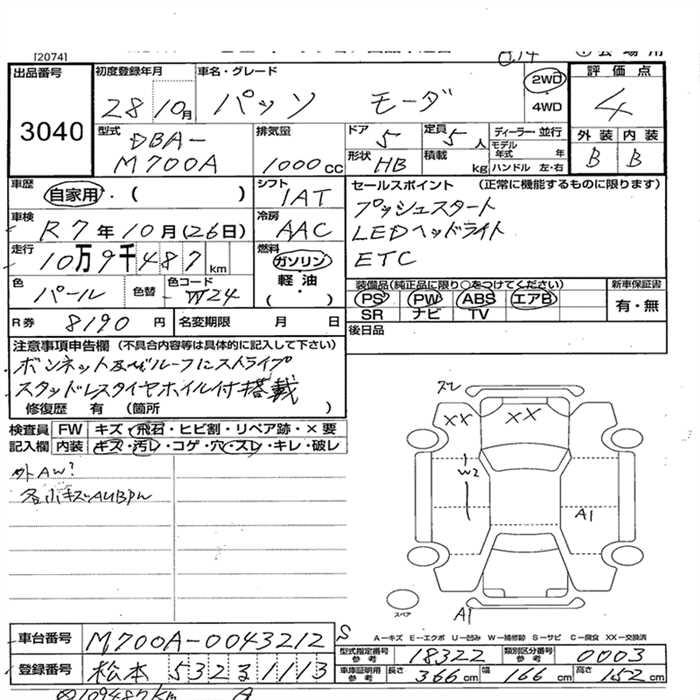 [2074]
出品番号 初度登録年月 車名・グレード 評価点
3040
28 10月 パッソ モーダ 2WD 4WD 4
外装 内装
B B
型式 DBA-M700A 排気量 1000cc ドア 5 定員 5人 ディーラー・並行
形状 HB 積載 kg モデル年式 年
ハンドル 左・右
車歴 自家用・( ) シフト IAT セールスポイント (正常に機能するものに限ります)
車検 R7年10月(26日) 冷房 AAC プッシュスタート
LEDヘッドライト
ETC
走行 10万9千487km 燃料 ガソリン 軽油 ( )
色 パール 色替 色コード W24
装備品(純正品に限り○をつけてください) 新車保証書
PS PW ABS エアB 有・無
SR ナビ TV
R券 8190円 名変期限 月 日 後日品
注意事項申告欄 (不具合内容等は具体的に記入して下さい)
ボンネット及びルーフにストライプ
スタッドレスタイヤホイル付搭載
修復歴 有 (箇所 )
検査員記入欄 FW キズ・飛石・ヒビ割・リペア跡・×要
内装 キズ・汚レ・コゲ・穴・スレ・キレ・破レ
外AW?
各小キズ
スレ
XX XX
W2
A1
A1
スペア
A-キズ E-エクボ U-凹み W-補修跡 S-サビ C-腐食 XX-交換済
車台番号 M700A-0043212 型式指定番号 参考 18322 類別区分番号 参考 0003
登録番号 松本 532 る 1113 車庫証明用 参考 長さ 366cm 幅 166cm 高さ 152cm
109487km